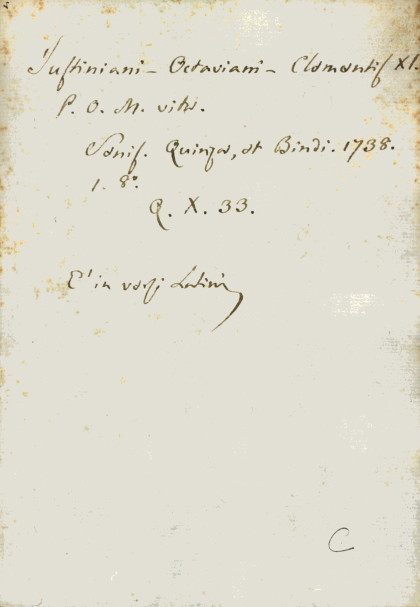 Iustiniani - Octaviani - Clementis XI.
P. O. M. vita.
Senis. Quinza, et Bindi. 1738.
1. 8°.
Q. X. 33.
E' in versi Latini
C